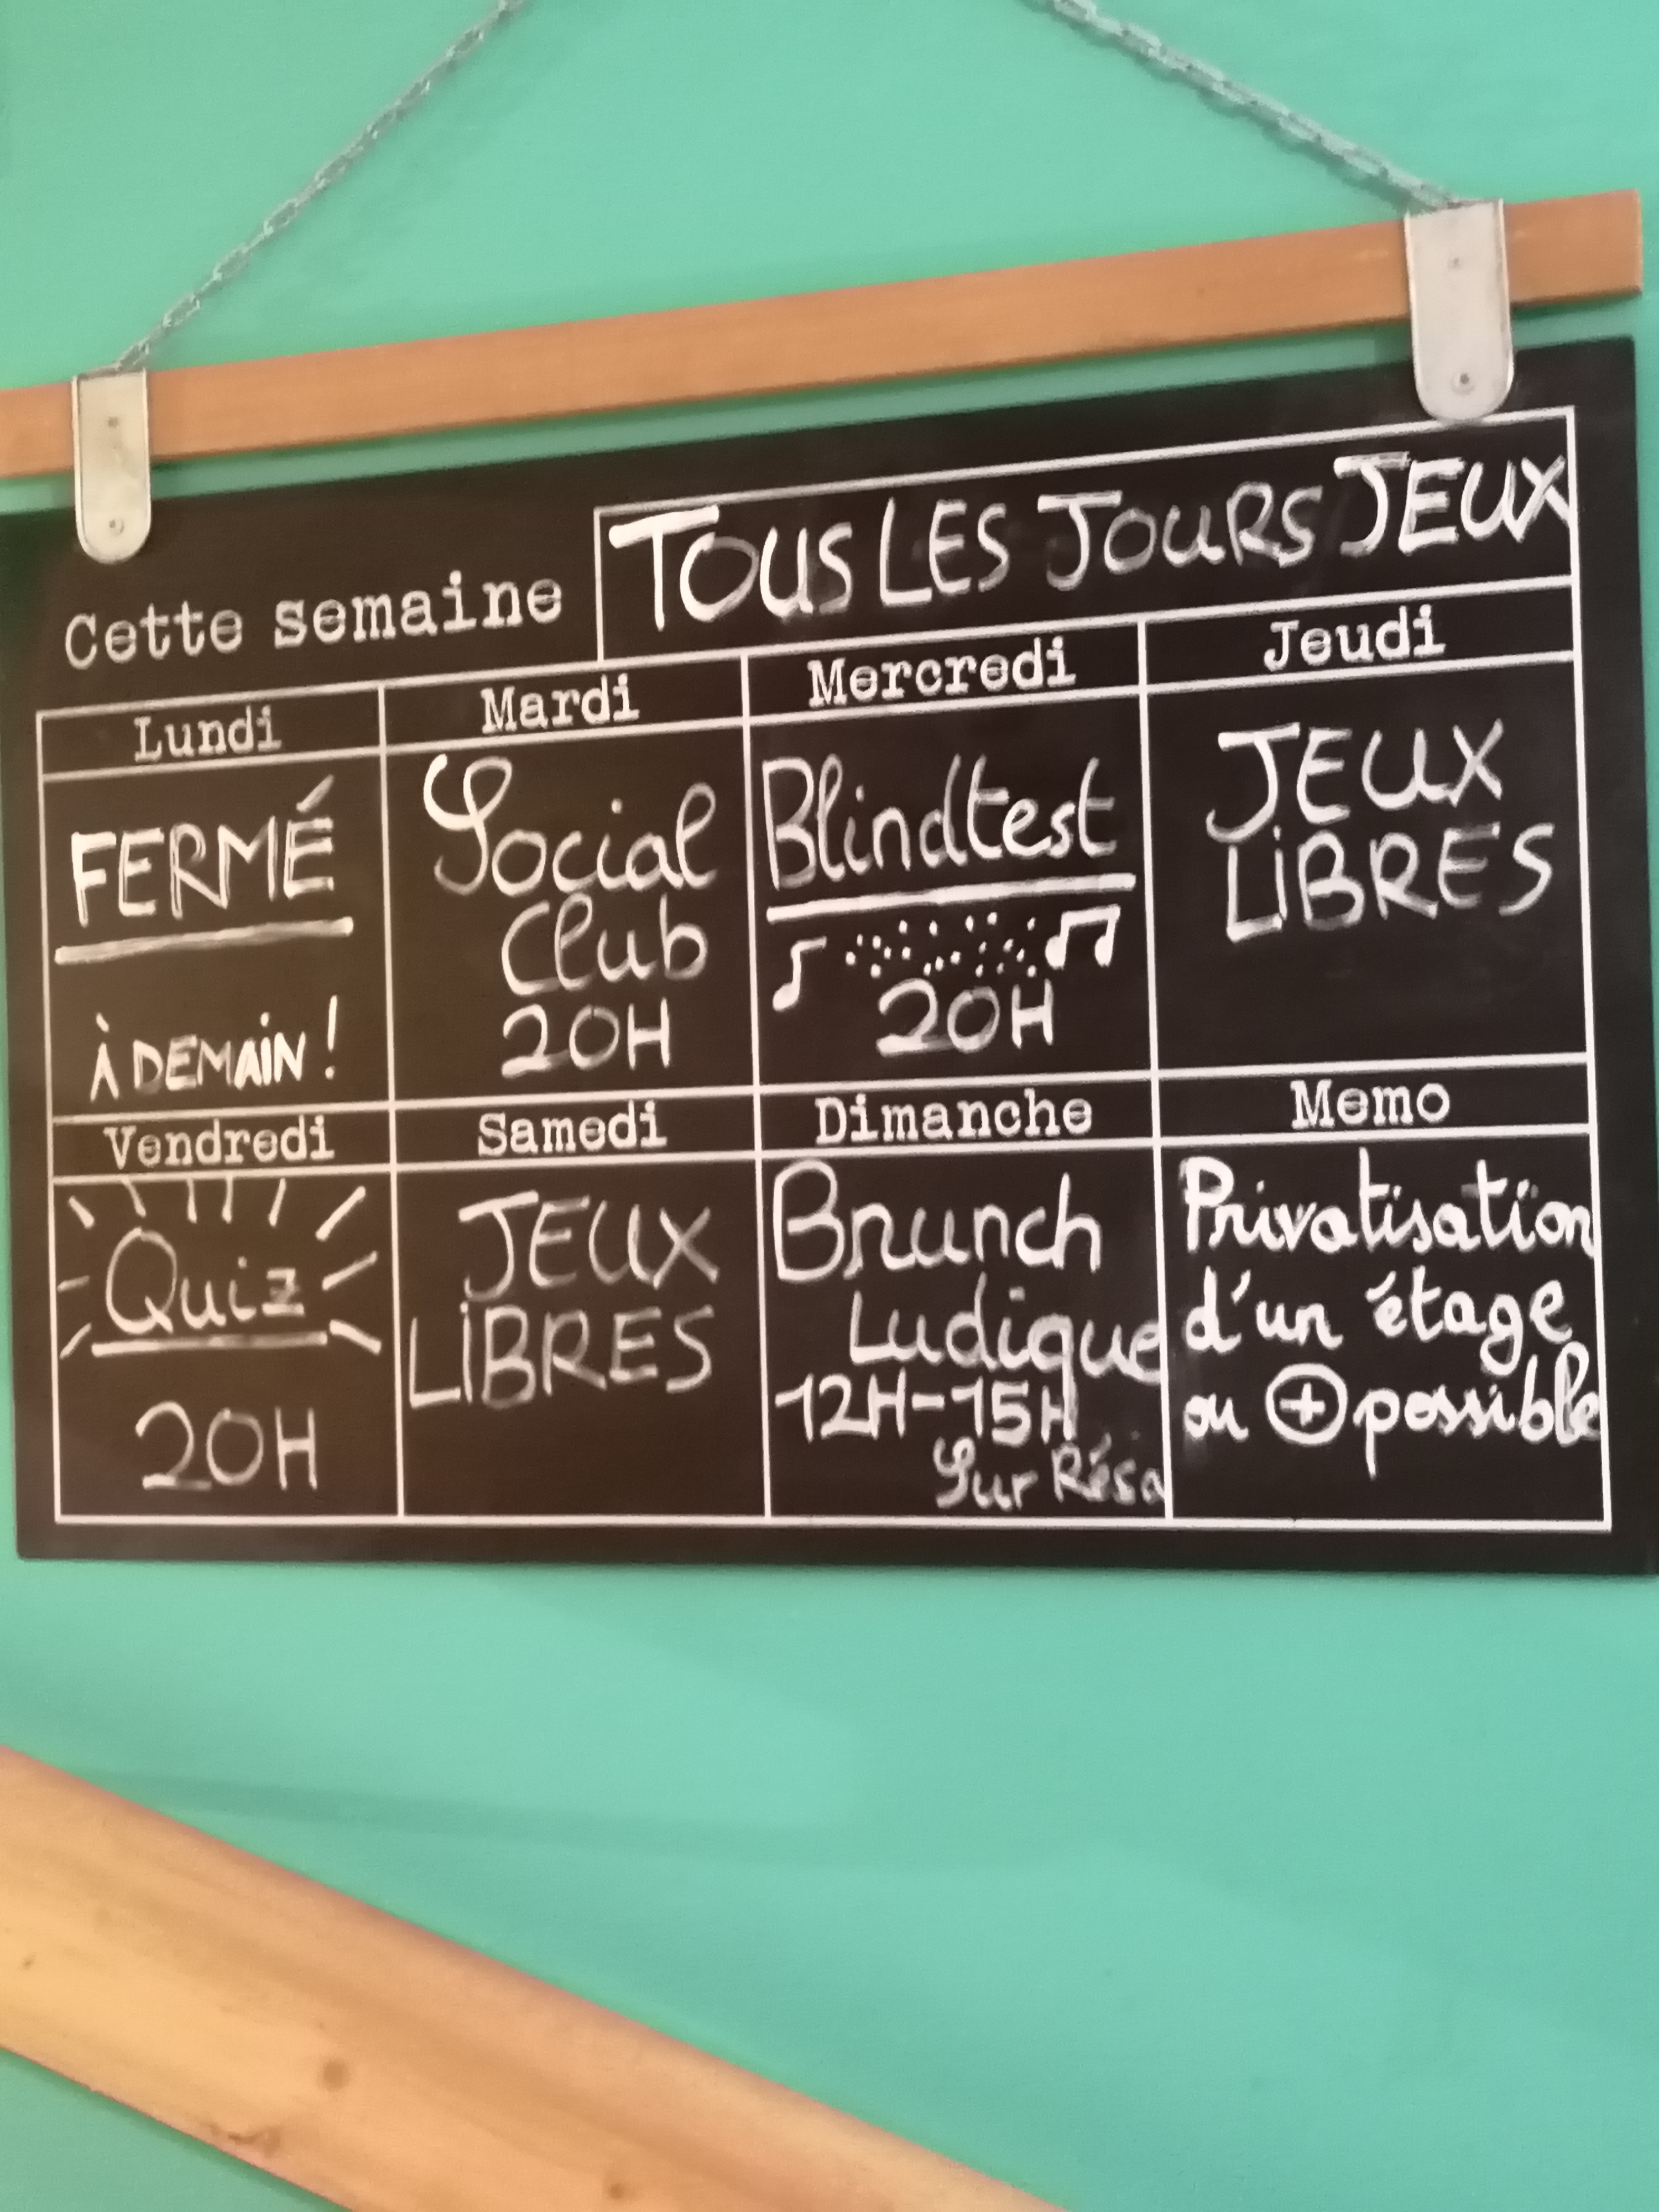 Cette semaine
TOUS LES JOURS JEUX
Lundi
FERMÉ
À DEMAIN !
Mardi
Social
Club
20H
Mercredi
Blindtest
20H
Jeudi
JEUX
LIBRES
Vendredi
Quiz
20H
Samedi
JEUX
LIBRES
Dimanche
Brunch
Ludique
12H-15H
Sur Résa
Memo
Privatisation
d'un étage
ou + possible